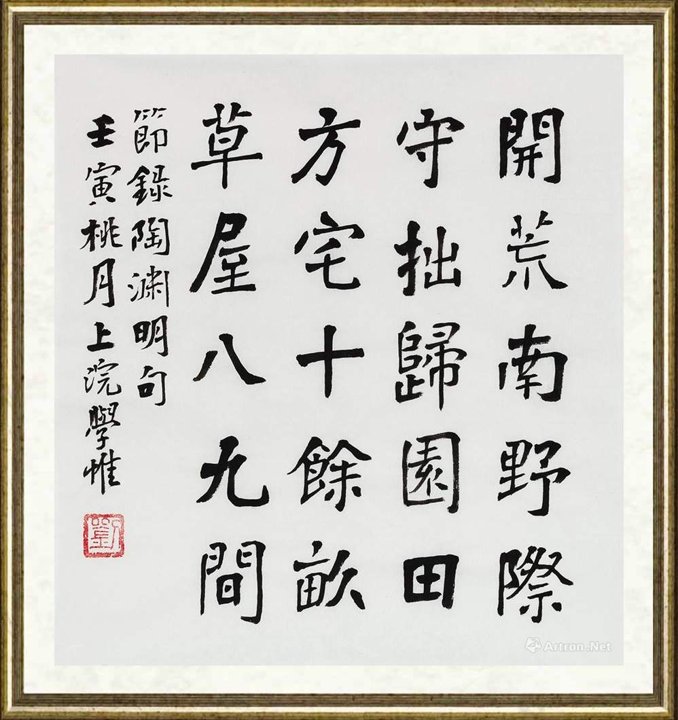 開荒南野際
守拙歸園田
方宅十餘畝
草屋八九間
節錄陶淵明句
壬寅桃月上浣學惟
劉
Artron.Net